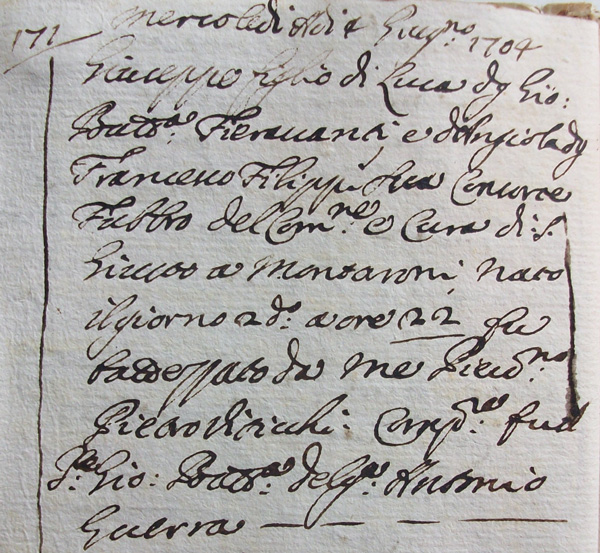 171 Mercoledi Adi 4 Giug.no 1704
Giuseppe figlio di Luca dg Gio:
Batt.a Fieravanti e d'Angiola dg
Francesco Filippi sua Consorte
Fabbro del Com.ne e Cura di S.
Giusto a Montaroni Nato
il giorno 2 d.o a ore 22 fu
battezzato da me
Pietro Comp.re fu il
S.re Gio: Batt.a del q.m Antonio
Guerra